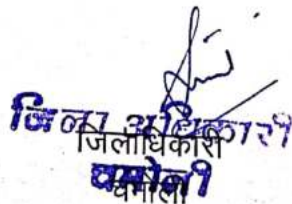 जिला अधिकारी
जिलाधिकारी
चमोली
चमोली